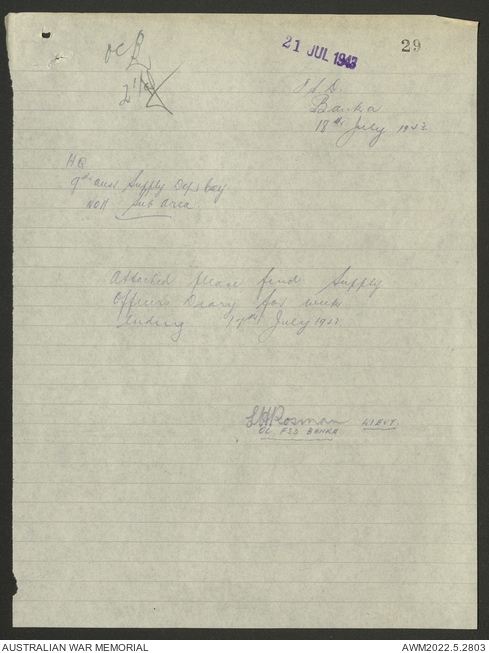 OC
21 JUL 1943
29
F S D.
Banka
18th July 1943.
HQ
9th Aust Supply Dep Coy
NOH Sub Area
Attached please find Supply
Officers Diary for week
ending 17th July 1943.
LH Rosman LIEUT.
OC FSD BANKA
AUSTRALIAN WAR MEMORIAL
AWM2022.5.2803